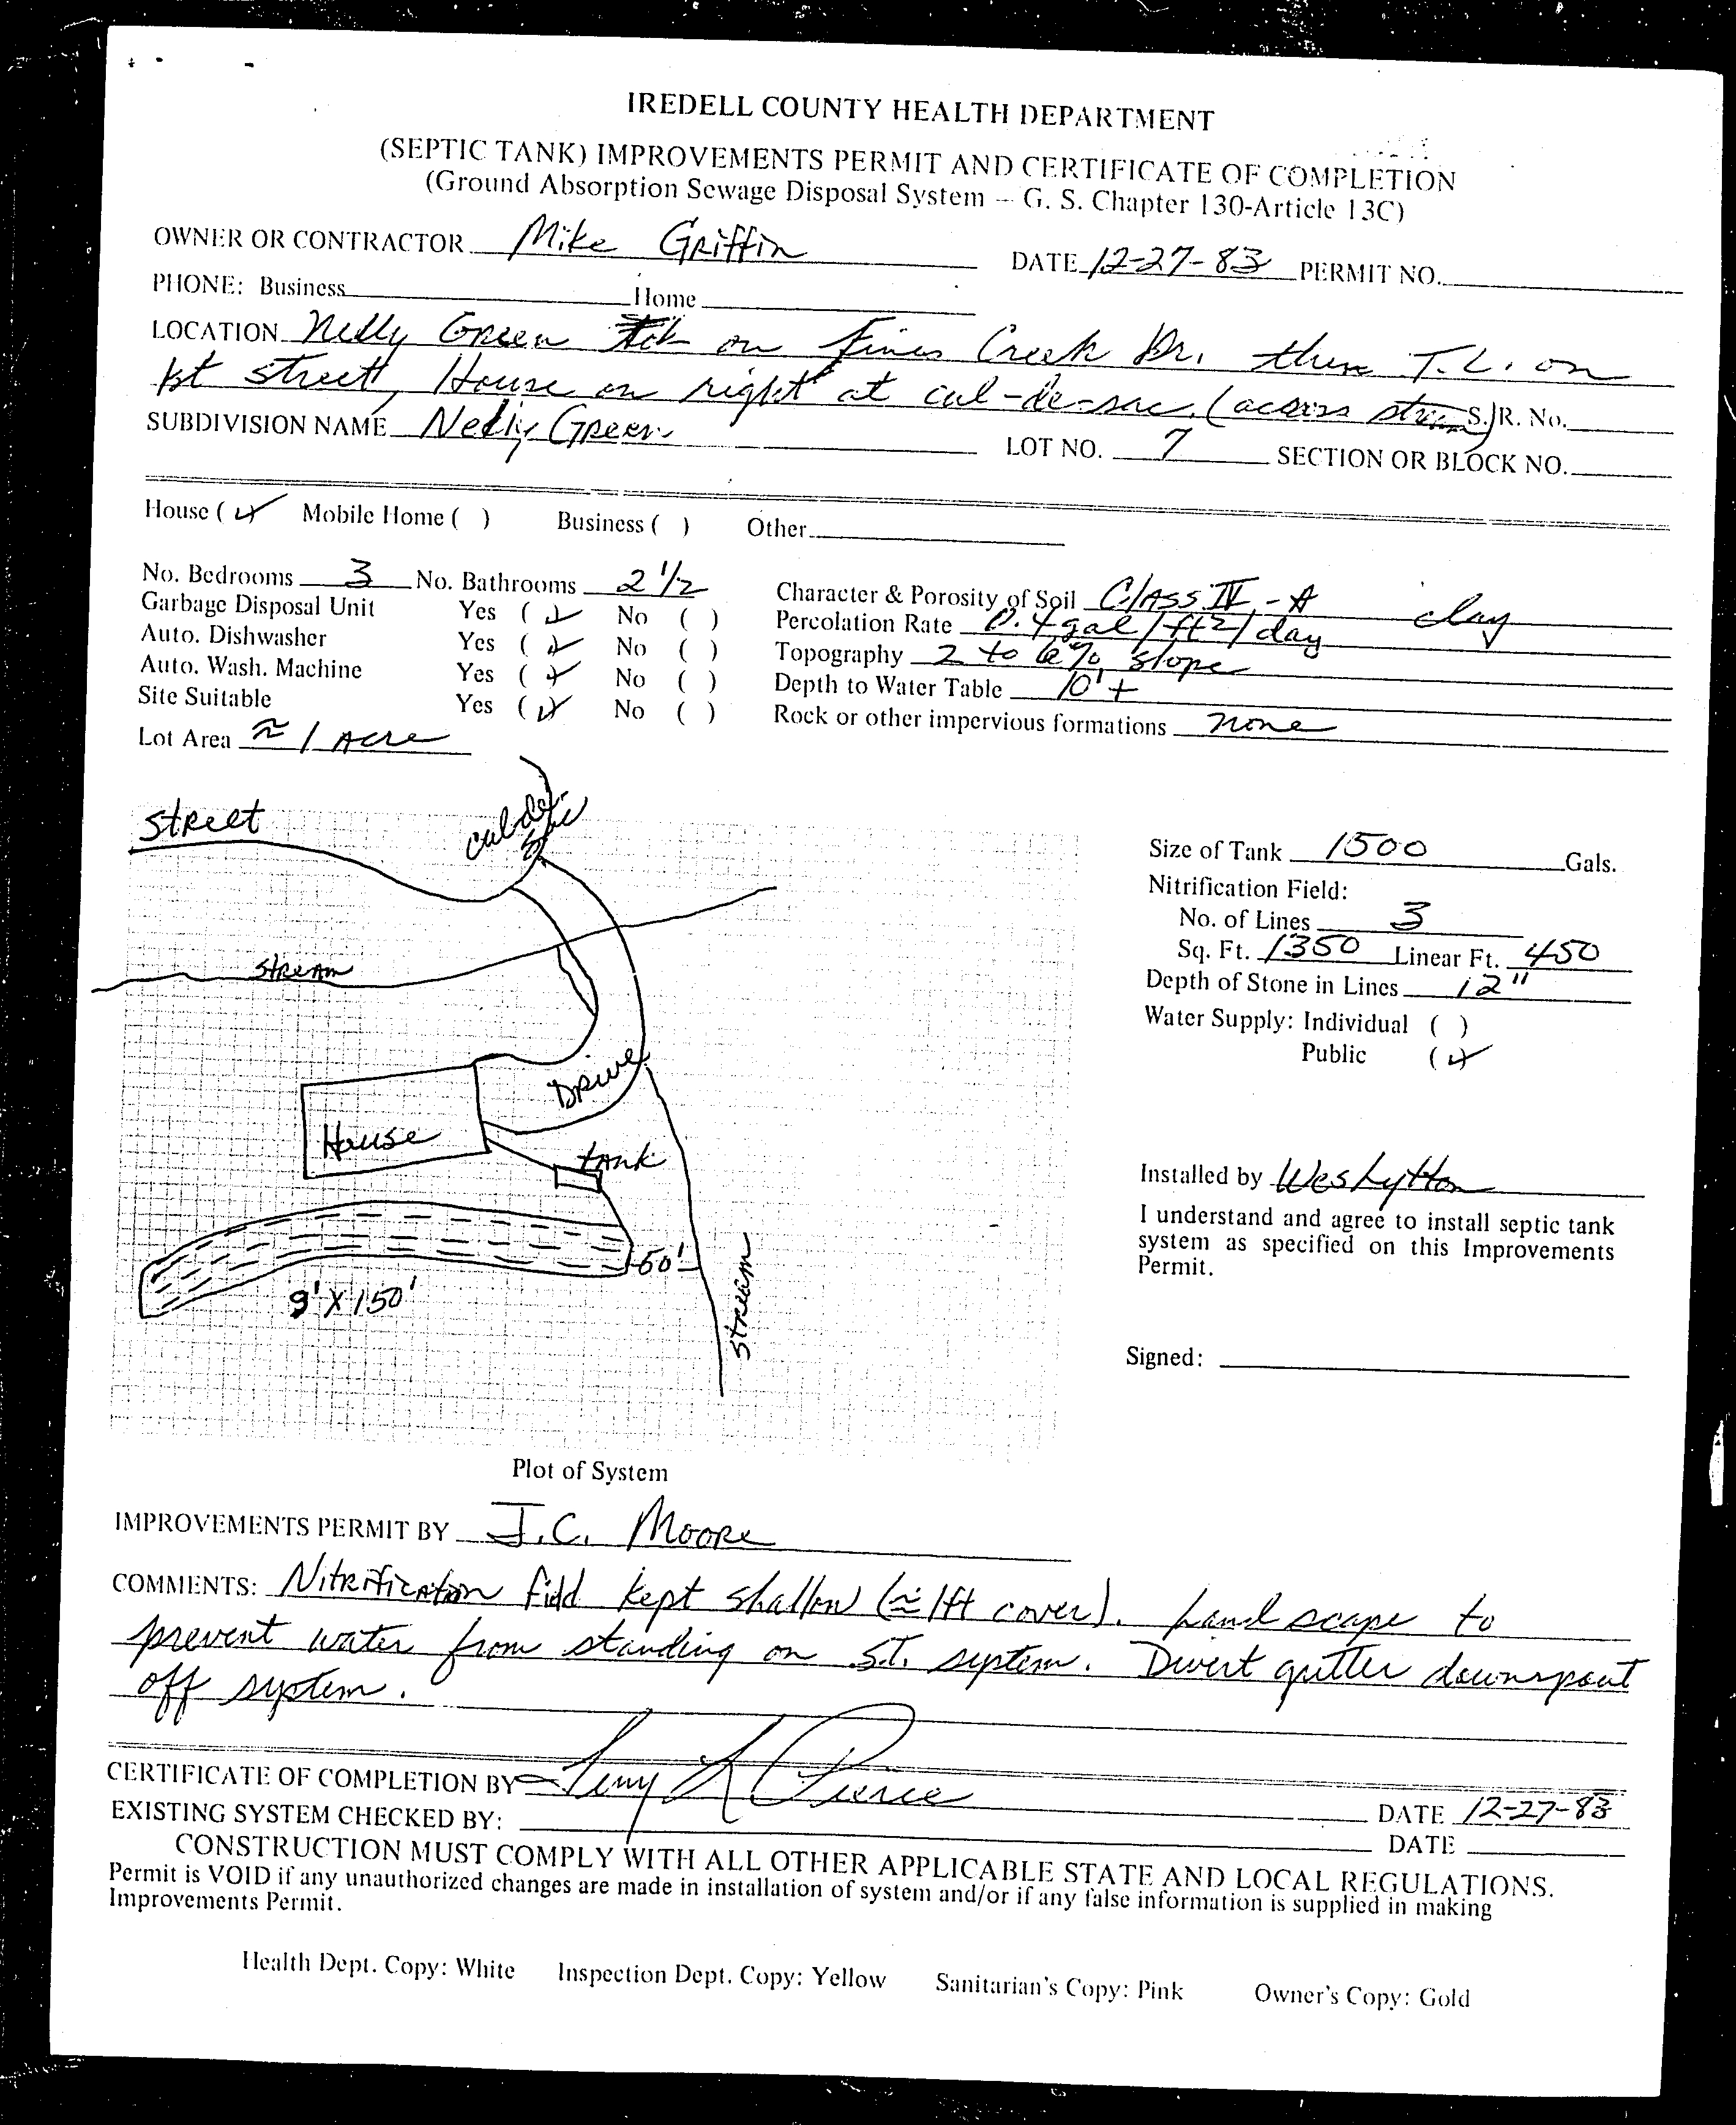 IREDELL COUNTY HEALTH DEPARTMENT
(SEPTIC TANK) IMPROVEMENTS PERMIT AND CERTIFICATE OF COMPLETION
(Ground Absorption Sewage Disposal System – G. S. Chapter 130-Article 13C)
OWNER OR CONTRACTOR Mike Griffin DATE 12-27-83 PERMIT NO.
PHONE: Business Home
LOCATION Nelly Green on Creek Dr. then T.L. on
1st street, House on right at cul-de-sac. (across stream) S. R. No.
SUBDIVISION NAME Nelly Green LOT NO. 7 SECTION OR BLOCK NO.
House ( ✓ ) Mobile Home ( ) Business ( ) Other
No. Bedrooms 3 No. Bathrooms 2 1/2 Character & Porosity of Soil Class IV-A clay
Garbage Disposal Unit Yes ( ✓ ) No ( ) Percolation Rate 0.4 gal/ft2/day
Auto. Dishwasher Yes ( ✓ ) No ( ) Topography 2 to 6% slope
Auto. Wash. Machine Yes ( ✓ ) No ( ) Depth to Water Table 10'+
Site Suitable Yes ( ✓ ) No ( ) Rock or other impervious formations none
Lot Area ≈ 1 Acre
Street
cul-de-
sac
Stream
Drive
House
tank
50'
9' X 150'
stream
Size of Tank 1500 Gals.
Nitrification Field:
No. of Lines 3
Sq. Ft. 1350 Linear Ft. 450
Depth of Stone in Lines 12"
Water Supply: Individual ( )
Public ( ✓ )
Installed by Wes Lytton
I understand and agree to install septic tank
system as specified on this Improvements
Permit.
Signed:
Plot of System
IMPROVEMENTS PERMIT BY J.C. Moore
COMMENTS: Nitrification field kept shallow (≈ 1ft cover). Landscape to
prevent water from standing on S.T. system. Divert gutter downspout
off system.
CERTIFICATE OF COMPLETION BY Pierce DATE 12-27-83
EXISTING SYSTEM CHECKED BY: DATE
CONSTRUCTION MUST COMPLY WITH ALL OTHER APPLICABLE STATE AND LOCAL REGULATIONS.
Permit is VOID if any unauthorized changes are made in installation of system and/or if any false information is supplied in making
Improvements Permit.
Health Dept. Copy: White Inspection Dept. Copy: Yellow Sanitarian's Copy: Pink Owner's Copy: Gold